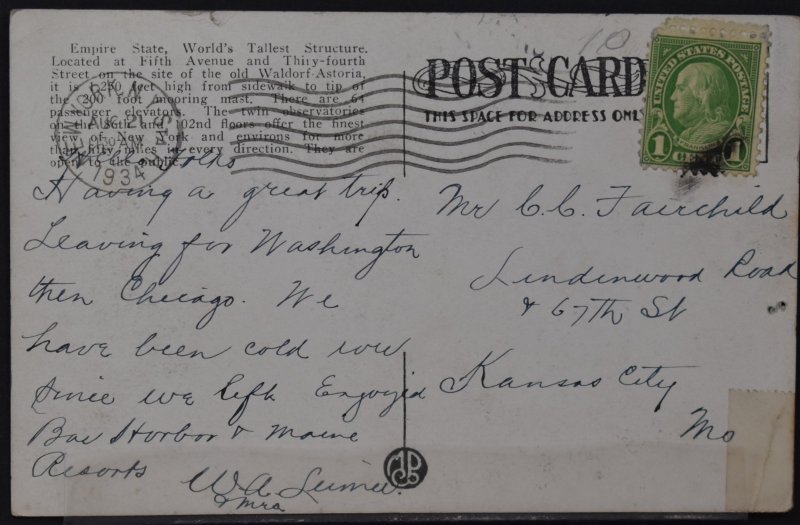 Empire State, World's Tallest Structure.
Located at Fifth Avenue and Thirty-fourth
Street on the site of the old Waldorf-Astoria,
it is 1,250 feet high from sidewalk to tip of
the 200 foot mooring mast. There are 64
passenger elevators. The twin observatories
on the 86th and 102nd floors offer the finest
view of New York and environs for more
than fifty miles in every direction. They are
open to the public.
POST CARD
THIS SPACE FOR ADDRESS ONLY
UNITED STATES POSTAGE
FRANKLIN
1 CENT 1
NEW YORK, N.Y.
AUG
AM
1934
10
Folks
Having a great trip.
Leaving for Washington
then Chicago. We
have been cold
since we left Enjoyed
Bar Harbor & Maine
Resorts
W A
& Mra
Mr C. C. Fairchild
Lindenwood Road
& 67th St
Kansas City
Mo